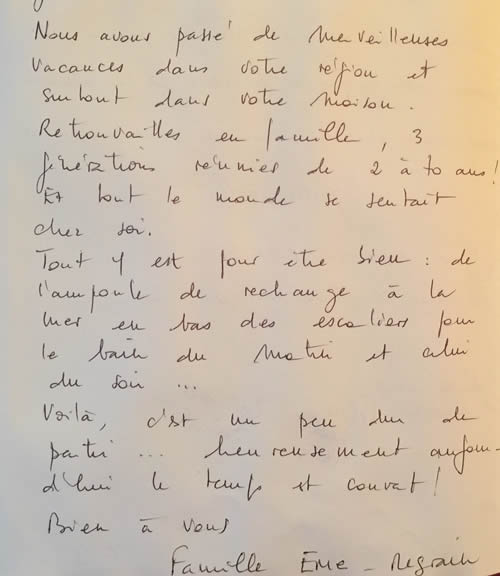 Nous avons passé de merveilleuses
vacances dans votre région et
surtout dans votre maison.
Retrouvailles en famille, 3
générations réunies de 2 à 70 ans!
Et tout le monde se sentait
chez soi.
Tout y est pour être bien : de
l'ampoule de rechange à la
mer en bas des escaliers pour
le bain du matin et celui
du soir ...
Voilà, c'est un peu dur de
partir ... heureusement aujour-
d'hui le temps est couvert!
Bien à vous
Famille Eme - Regrain